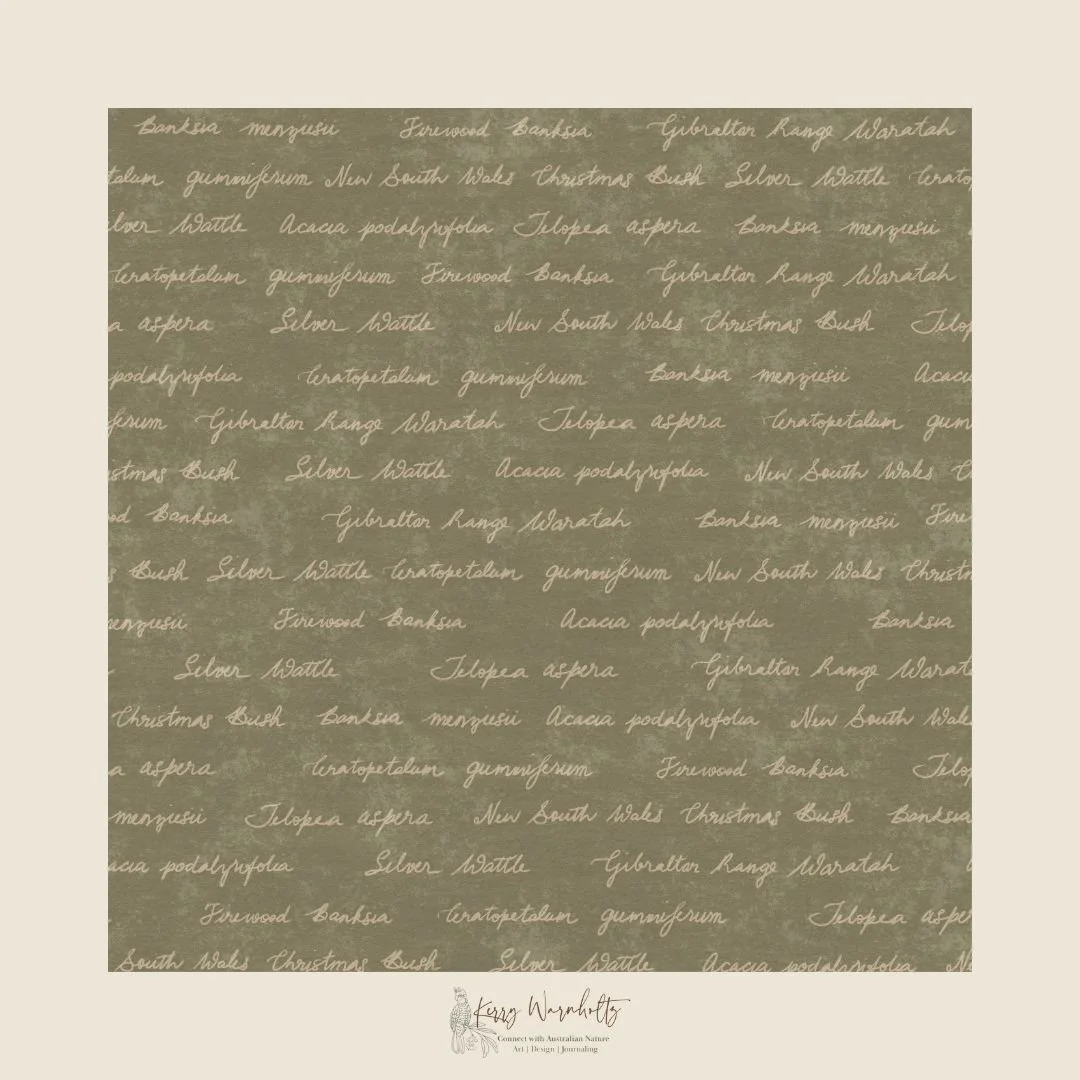 Banksia menziesii Firewood Banksia Gibraltar Range Waratah
talum gummiferum New South Wales Christmas Bush Silver Wattle Cerato
ilver Wattle Acacia podalyriifolia Telopea aspera Banksia menziesii
Ceratopetalum gummiferum Firewood Banksia Gibraltar Range Waratah
a aspera Silver Wattle New South Wales Christmas Bush Telop
podalyriifolia Ceratopetalum gummiferum Banksia menziesii Acaci
ferum Gibraltar Range Waratah Telopea aspera Ceratopetalum gum
stmas Bush Silver Wattle Acacia podalyriifolia New South Wales C
od Banksia Gibraltar Range Waratah Banksia menziesii Fire
s Bush Silver Wattle Ceratopetalum gummiferum New South Wales Christm
menziesii Firewood Banksia Acacia podalyriifolia Banksia
Silver Wattle Telopea aspera Gibraltar Range Warata
Christmas Bush Banksia menziesii Acacia podalyriifolia New South Wales
a aspera Ceratopetalum gummiferum Firewood Banksia Telop
menziesii Telopea aspera New South Wales Christmas Bush Banksia
acia podalyriifolia Silver Wattle Gibraltar Range Waratah
Firewood Banksia Ceratopetalum gummiferum Telopea asper
South Wales Christmas Bush Silver Wattle Acacia podalyriifolia N
Kerry Warnholtz
Connect with Australian Nature
Art | Design | Journaling